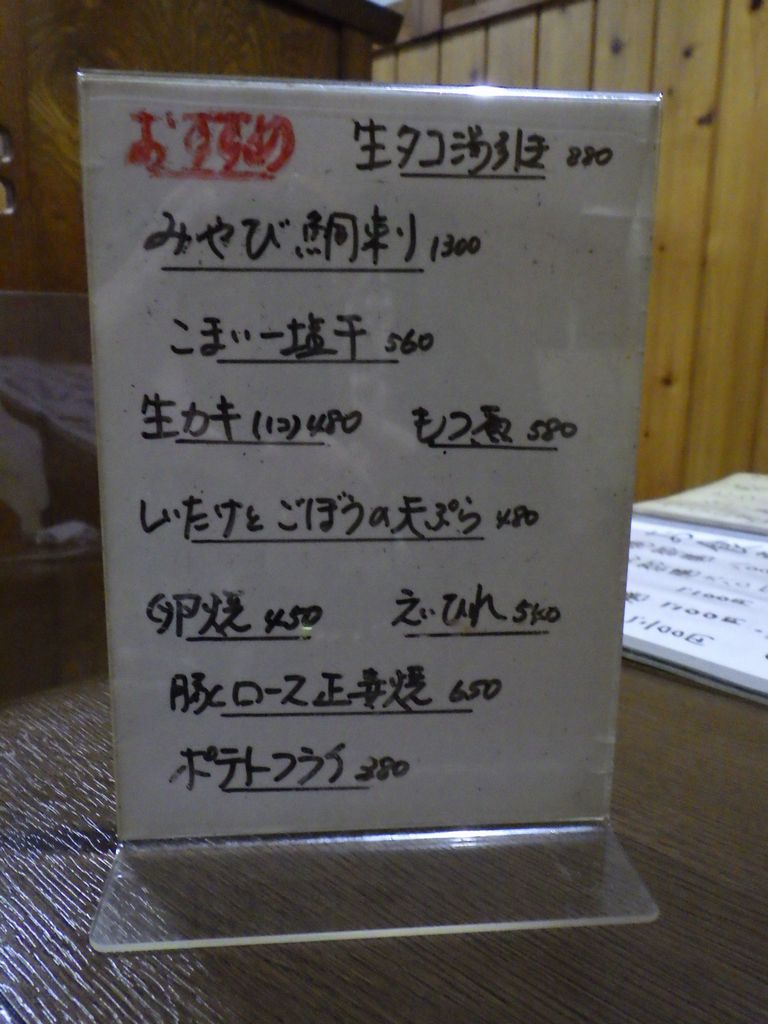 おすすめ 生タコ湯引き 880
みやび鯛刺り 1300
こまい一塩干 560
生カキ(1コ) 480 もつ煮 580
しいたけとごぼうの天ぷら 480
卵焼 450 えいひれ 540
豚ロース正姜焼 650
ポテトフライ 380